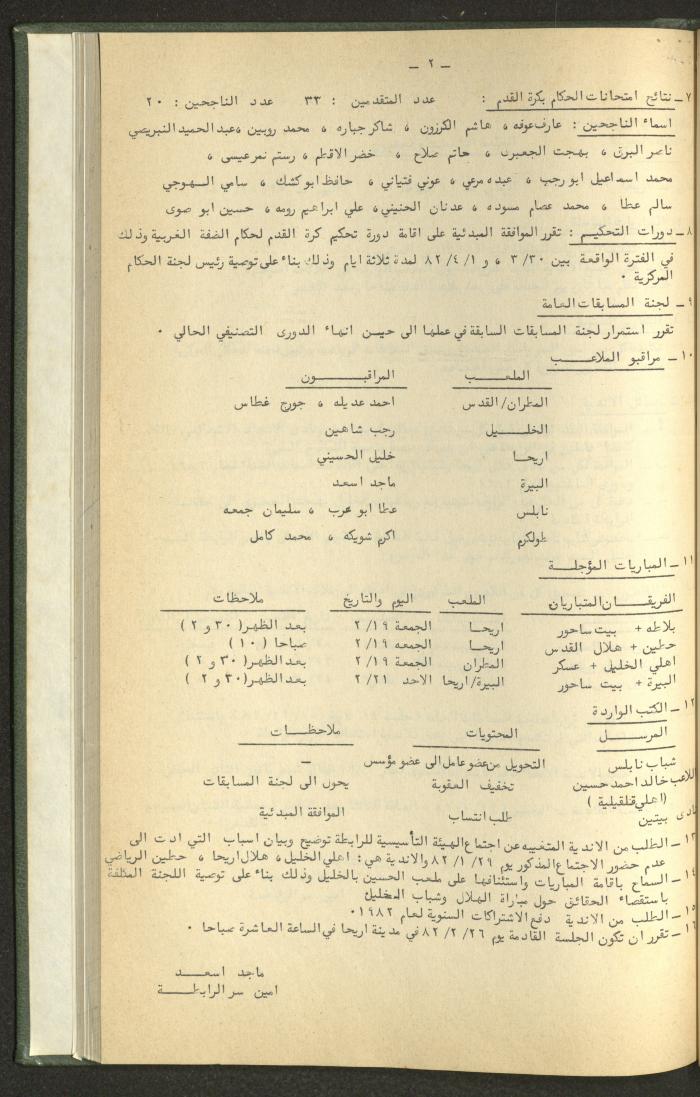 - ٢ -
٧- نتائج امتحانات الحكام بكرة القدم : عدد المتقدمين : ٣٣ عدد الناجحين : ٢٠
اسماء الناجحين : عارف عوفه ، هاشم الكرزون ، شاكر جباره ، محمد روبين ، عبد الحميد النبريصي
ناصر البرق ، بهجت الجعبرى ، حاتم صلاح ، خضر الاقطم ، رستم نمر عيسى ،
محمد اسماعيل ابو رجب ، عبده مرعي ، عوني فتياني ، حافظ ابو كشك ، سامي السهوجي
سالم عطا ، محمد عصام مسوده ، عدنان الحنيني ، علي ابراهيم رومه ، حسين ابو صوى
٨- دورات التحكيم : تقرر الموافقة المبدئية على اقامة دورة تحكيم كرة القدم لحكام الضفة الغربية وذلك
في الفترة الواقعة بين ٣/٣٠ ، و ٨٢/٤/١ لمدة ثلاثة ايام وذلك بناء على توصية رئيس لجنة الحكام
المركزية ٠
٩- لجنة المسابقات العامة
تقرر استمرار لجنة المسابقات السابقة في عملها الى حين انهاء الدورى التصنيفي الحالي ٠
١٠- مراقبو الملاعب
الملعب المراقبون
المطران/القدس احمد عديله ، جورج غطاس
الخليل رجب شاهين
اريحا خليل الحسيني
البيرة ماجد اسعد
نابلس عطا ابو عرب ، سليمان جمعه
طولكرم اكرم شويكه ، محمد كامل
١١- المباريات المؤجلة
الفريقان المتباريان الملعب اليوم والتاريخ ملاحظات
بلاطه + بيت ساحور اريحا الجمعة ٢/١٩ بعد الظهر (٣٠ و ٢)
حطين + هلال القدس اريحا الجمعه ٢/١٩ صباحا (١٠)
اهلي الخليل + عسكر المطران الجمعة ٢/١٩ بعد الظهر (٣٠ و ٢)
البيرة + بيت ساحور البيرة/اريحا الاحد ٢/٢١ بعد الظهر (٣٠ و ٢)
١٢- الكتب الواردة
المرسل المحتويات ملاحظات
شباب نابلس التحويل من عضو عامل الى عضو مؤسس -
اللاعب خالد احمد حسين تخفيف العقوبة يحول الى لجنة المسابقات
(اهلي قلقيلية)
نادى بيتين طلب انتساب الموافقة المبدئية
١٣- الطلب من الاندية المتغيبه عن اجتماع الهيئة التأسيسية للرابطة توضيح وبيان اسباب التي ادت الى
عدم حضور الاجتماع المذكور يوم ٨٢/١/٢٩ والاندية هي : اهلي الخليل ، هلال اريحا ، حطين الرياضي
١٤- السماح باقامة المباريات واستئنافها على ملعب الحسين بالخليل وذلك بناء على توصية اللجنة المكلفة
باستقصاء الحقائق حول مباراة الهلال وشباب الخليل
١٥- الطلب من الاندية دفع الاشتراكات السنوية لعام ١٩٨٢٠
١٦- تقرر ان تكون الجلسة القادمة يوم ٨٢/٢/٢٦ في مدينة اريحا في الساعة العاشرة صباحا ٠
ماجد اسعد
امين سر الرابطة